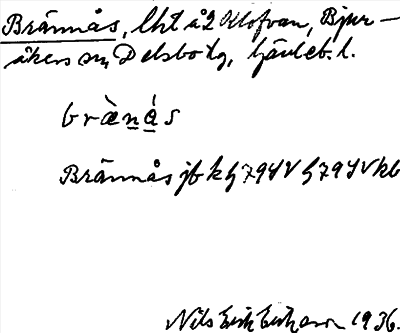 Brännås, lht å2 Klofvan, Bjur-
åkers sn, Delsbo tg, Gävleb. l.
brä̀nás
Brännås jb k G 794 V G 794 V kb
Nils Erik Eriksson 1936.